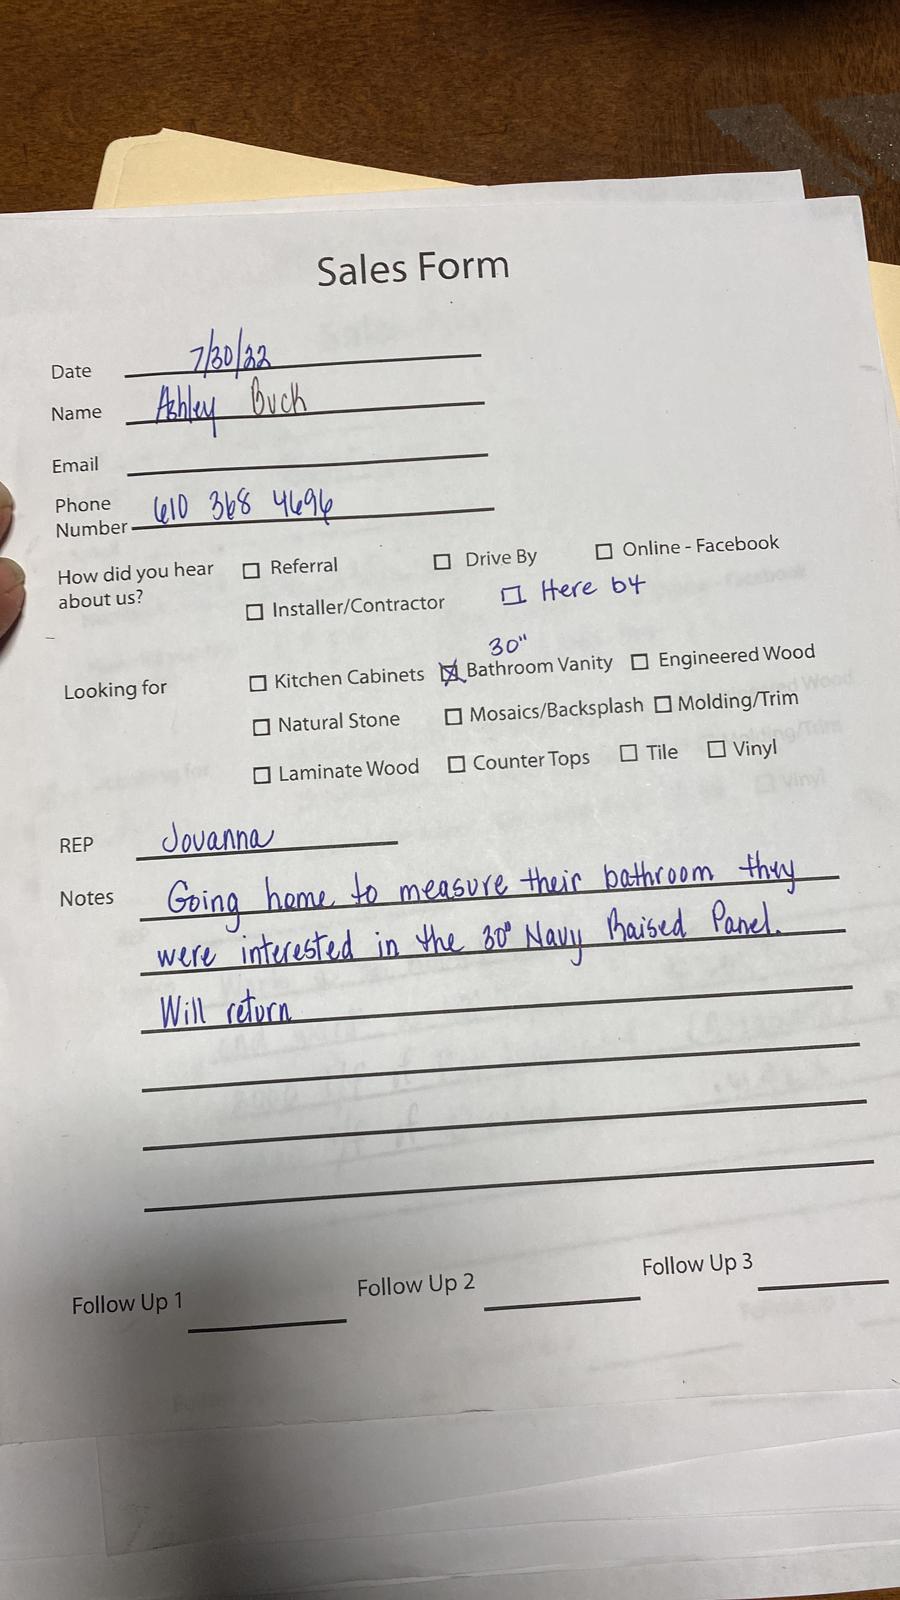 Sales Form
Date 7/30/22
Name Ashley Buch
Email
Phone
Number 610 368 4696
How did you hear about us?
☐ Referral ☐ Drive By ☐ Online - Facebook
☐ Installer/Contractor ☐ Here b4
30"
Looking for ☐ Kitchen Cabinets ☒ Bathroom Vanity ☐ Engineered Wood
☐ Natural Stone ☐ Mosaics/Backsplash ☐ Molding/Trim
☐ Laminate Wood ☐ Counter Tops ☐ Tile ☐ Vinyl
REP Jovanna
Notes Going home to measure their bathroom they
were interested in the 30" Navy Raised Panel.
Will return
Follow Up 1 Follow Up 2 Follow Up 3